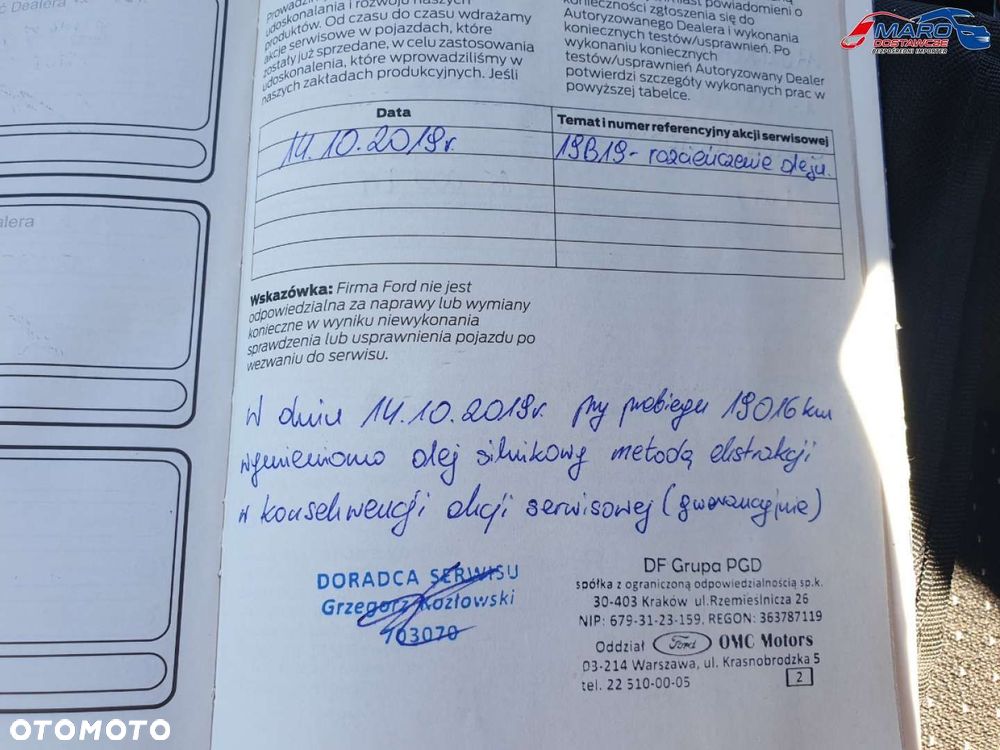 Dealera
prowadzimy
udoskonalania i rozwoju naszych
produktów. Od czasu do czasu wdrażamy
akcje serwisowe w pojazdach, które
zostały już sprzedane, w celu zastosowania
udoskonalenia, które wprowadziliśmy w
naszych zakładach produkcyjnych. Jeśli
powiadomieni o
konieczności zgłoszenia się do
Autoryzowanego Dealera i wykonania
koniecznych testów/usprawnień. Po
wykonaniu koniecznych
testów/usprawnień Autoryzowany Dealer
potwierdzi szczegóły wykonanych prac w
powyższej tabelce.
MARO
DOSTAWCZE
BEZPOŚREDNI IMPORTER
Data
Temat i numer referencyjny akcji serwisowej
14.10.2019r.
19B19 - rozcieńczenie oleju.
alera
Wskazówka: Firma Ford nie jest
odpowiedzialna za naprawy lub wymiany
konieczne w wyniku niewykonania
sprawdzenia lub usprawnienia pojazdu po
wezwaniu do serwisu.
W dniu 14.10.2019r. przy przebiegu 19016 km
wymieniono olej silnikowy metodą ekstrakcji
w konsekwencji akcji serwisowej (gwarancyjnie)
DORADCA SERWISU
Grzegorz Kozłowski
103070
DF Grupa PGD
spółka z ograniczoną odpowiedzialnością sp.k.
30-403 Kraków ul.Rzemieślnicza 26
NIP: 679-31-23-159, REGON: 363787119
Oddział Ford OMC Motors
03-214 Warszawa, ul. Krasnobrodzka 5
tel. 22 510-00-05 2
OTOMOTO